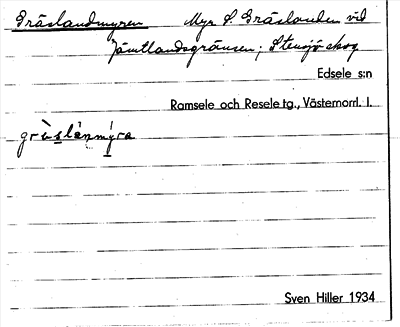 Gräslandmyren Myr S. Gräslanden vid
Jämtlandsgränsen; Stensjö skog
Edsele s:n
Ramsele och Resele tg., Västernorrl. l.
gräslänmýra
Sven Hiller 1934